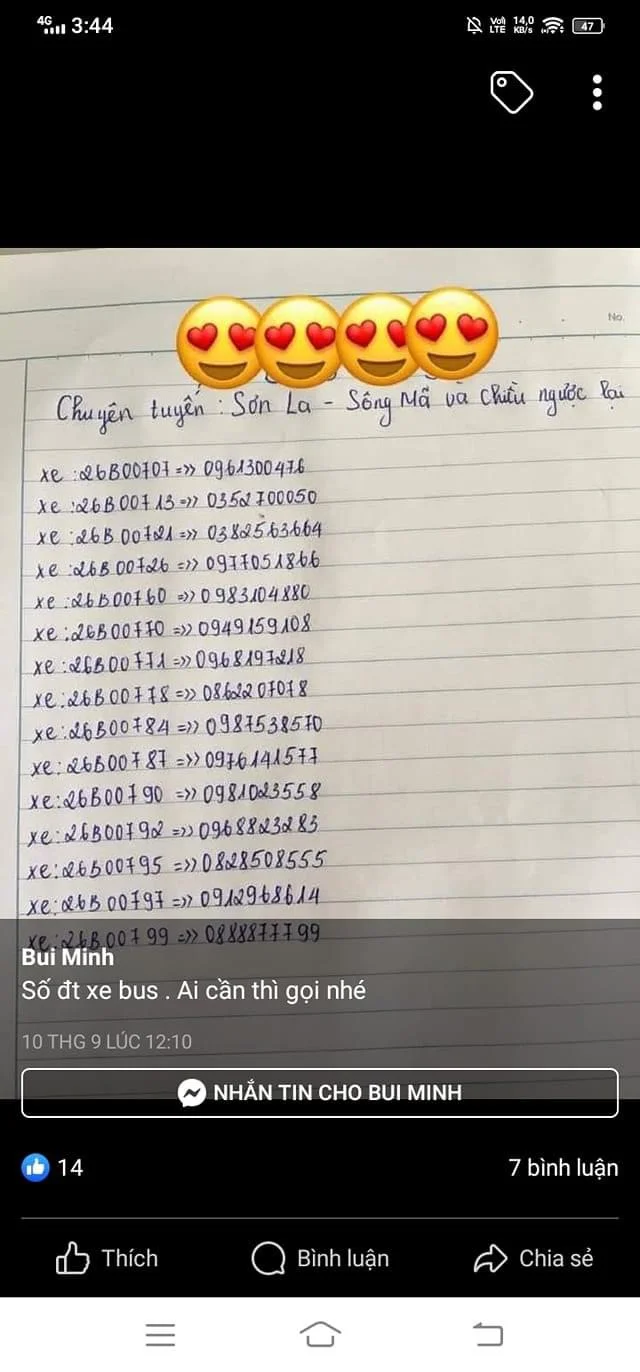 4G 3:44 Vol) LTE 14,0 KB/s 47
No.
Chuyên tuyến : Sơn La - Sông Mã và chiều ngược lại
xe :26B00707 =>> 0961300476
xe :26B00713 =>> 0352700050
xe :26B00721 =>> 0382563664
xe :26B00726 =>> 0977051866
xe :26B00760 =>> 0983104880
xe :26B00770 =>> 0949159108
xe :26B00771 =>> 0968197218
xe :26B00778 =>> 0862207078
xe :26B00784 =>> 0987538570
xe :26B00787 =>> 0976141577
xe :26B00790 =>> 0981023558
xe :26B00792 =>> 0968823283
xe :26B00795 =>> 0828508555
xe :26B00797 =>> 0912968614
xe :26B00799 =>> 0888877799
Bui Minh
Số đt xe bus . Ai cần thì gọi nhé
10 THG 9 LÚC 12:10
NHẮN TIN CHO BUI MINH
14 7 bình luận
Thích Bình luận Chia sẻ